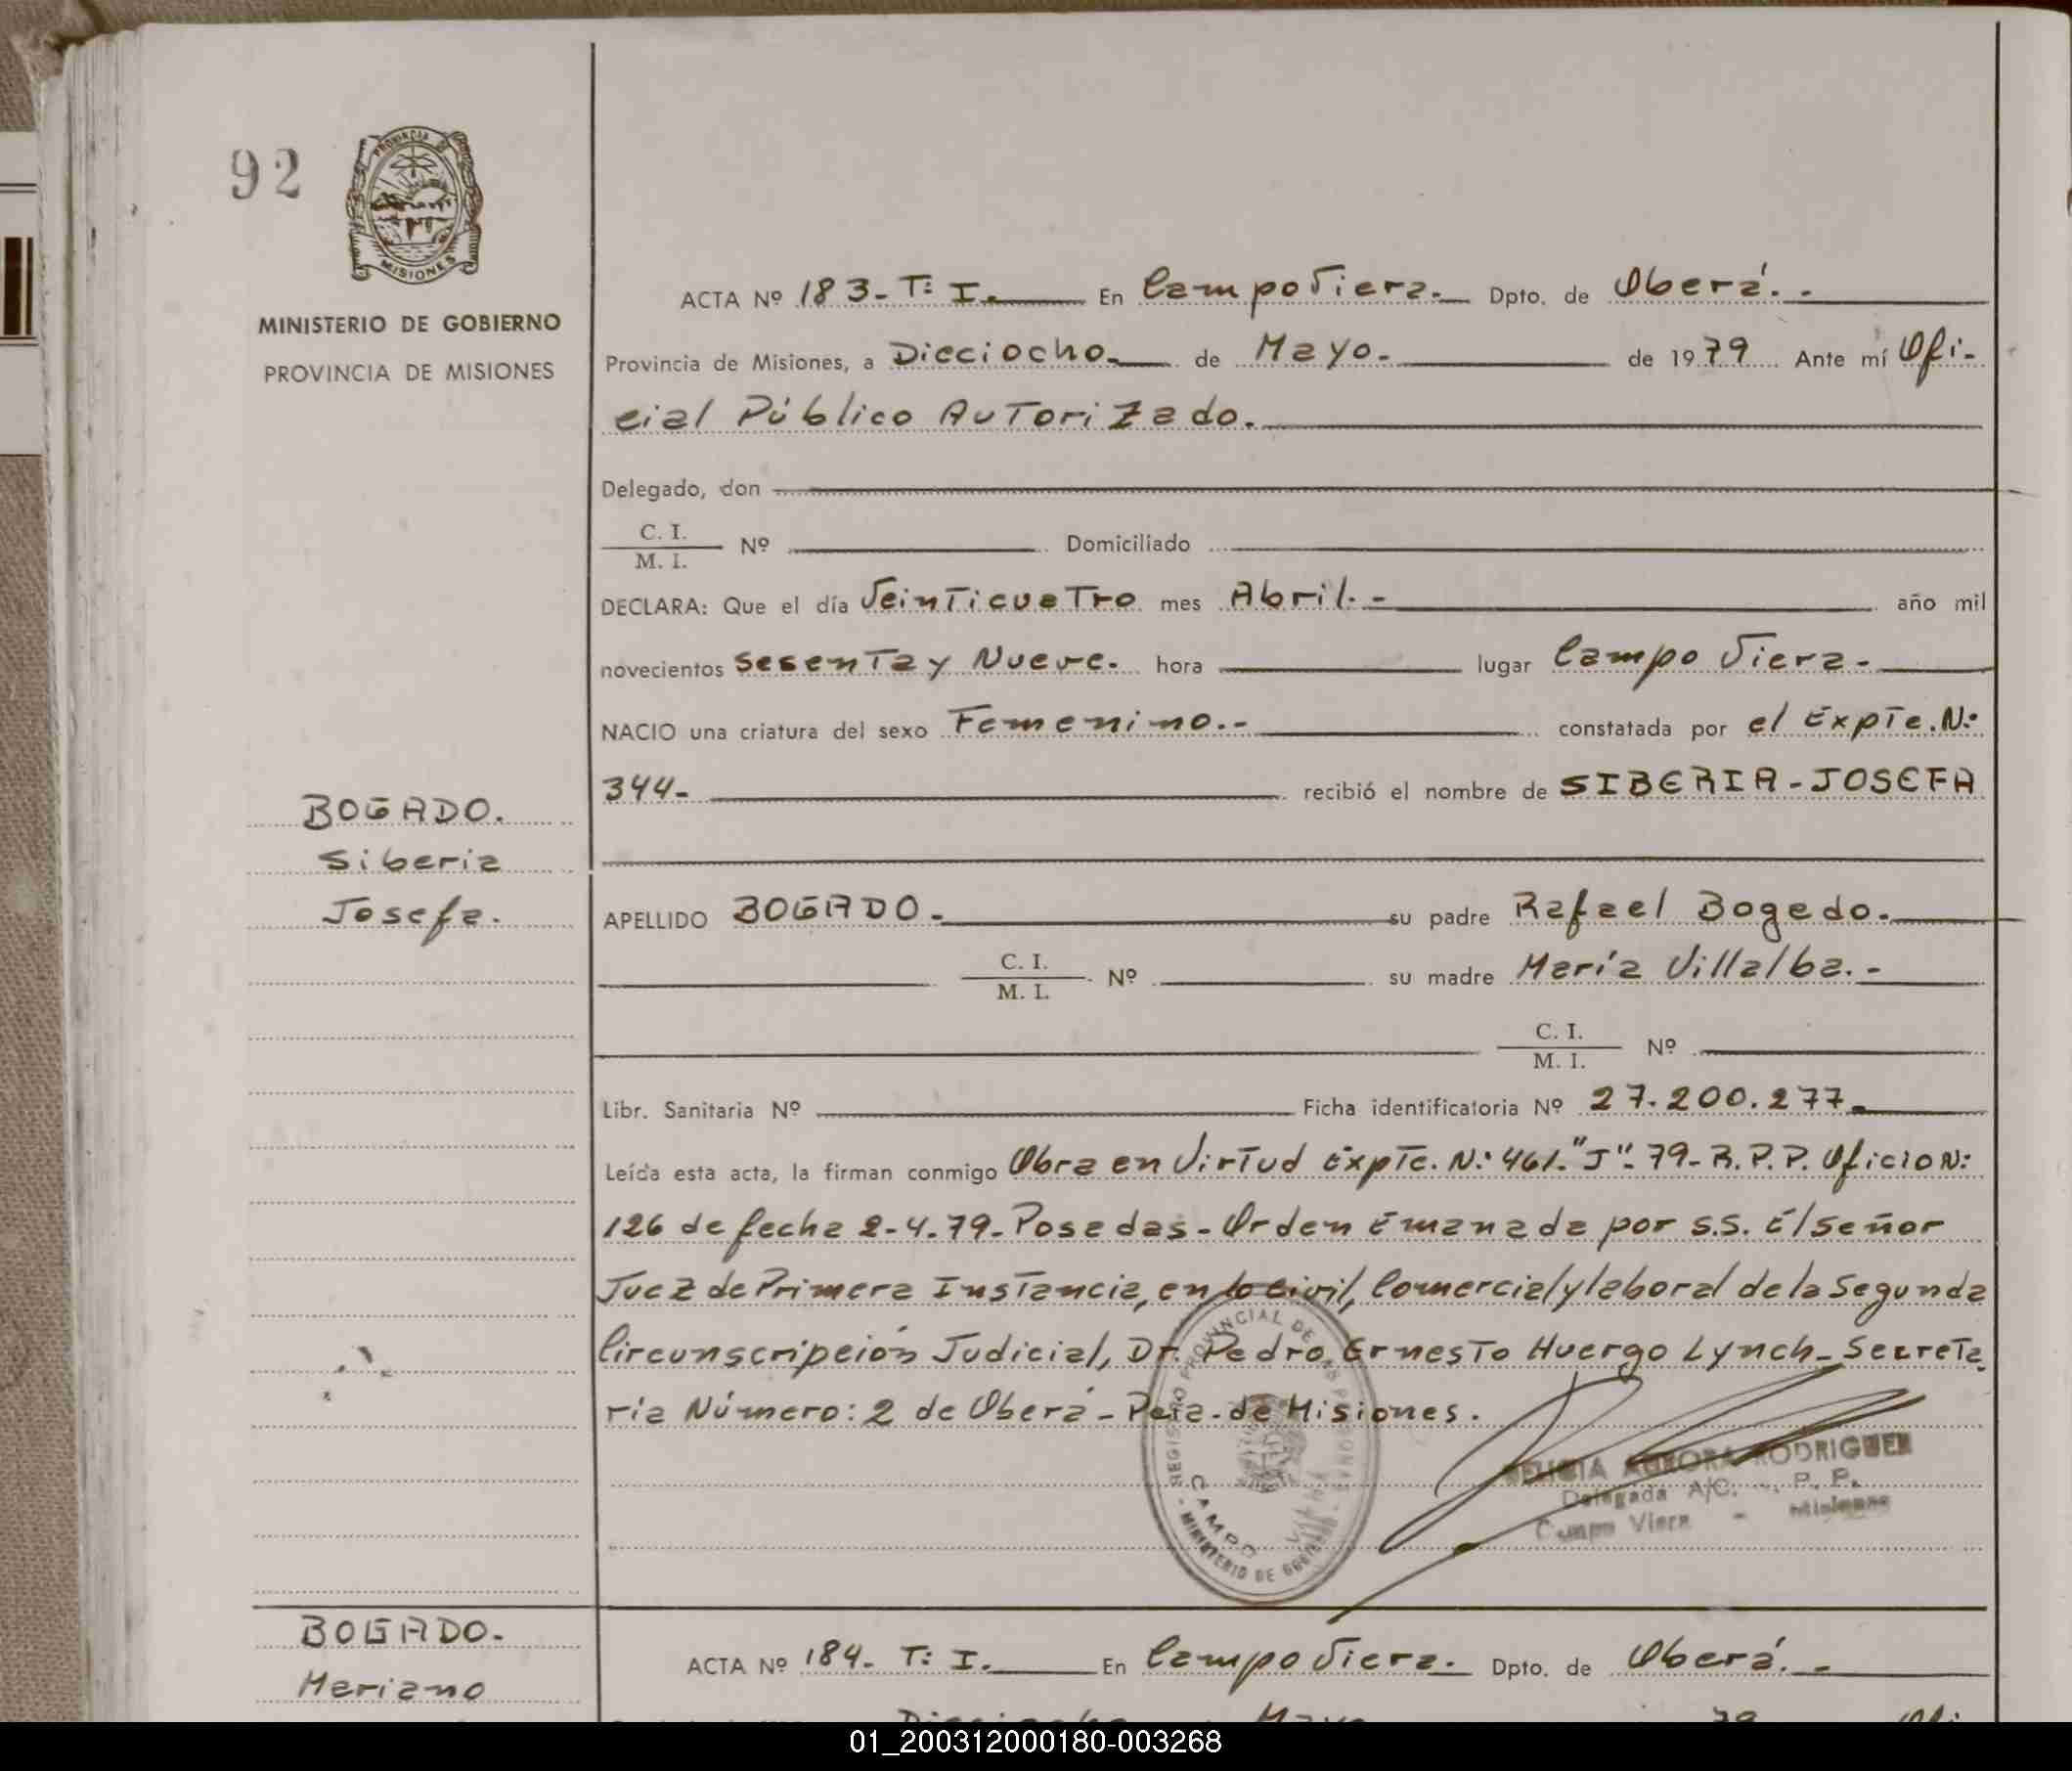 92
PROVINCIA DE
MISIONES
MINISTERIO DE GOBIERNO
PROVINCIA DE MISIONES
ACTA Nº 183- T: I. En Campo Viera. Dpto. de Oberá.-
Provincia de Misiones, a Dieciocho. de Mayo. de 1979 Ante mí Ofi-
cial Público Autorizado.
Delegado, don
C. I.
M. I. Nº Domiciliado
DECLARA: Que el día Veinticuatro mes Abril.- año mil
novecientos sesenta y Nueve. hora lugar Campo Viera.
NACIO una criatura del sexo Femenino.- constatada por el Expte. N:
344- recibió el nombre de SIBERIA-JOSEFA
BOGADO.
Siberia
Josefa.
APELLIDO BOGADO. su padre Rafael Bogado.
C. I.
M. I. Nº su madre María Villalba.-
C. I.
M. I. Nº
Libr. Sanitaria Nº Ficha identificatoria Nº 27.200.277.
Leída esta acta, la firman conmigo Obra en Virtud Expte. N: 461."J".79- R.P.P. Oficio N:
126 de fecha 2-4.79- Posadas- Orden Emanada por S.S. El Señor
Juez de Primera Instancia, en lo Civil, Comercial y laboral de la Segunda
Circunscripción Judicial, Dr. Pedro Ernesto Huergo Lynch- Secreta
ría Número: 2 de Oberá- Pcia. de Misiones.
REGISTRO PROVINCIAL DE LAS PERSONAS
CAMPO VIERA
MINISTERIO DE GOBIERNO
DELICIA AURORA RODRIGUEZ
Delegada A/C. R. P. P.
Campo Viera - Misiones
BOGADO.
Mariano
ACTA Nº 184- T: I. En Campo Viera. Dpto. de Oberá.-
Dieciocho Mayo 79 Ofi
01_200312000180-003268